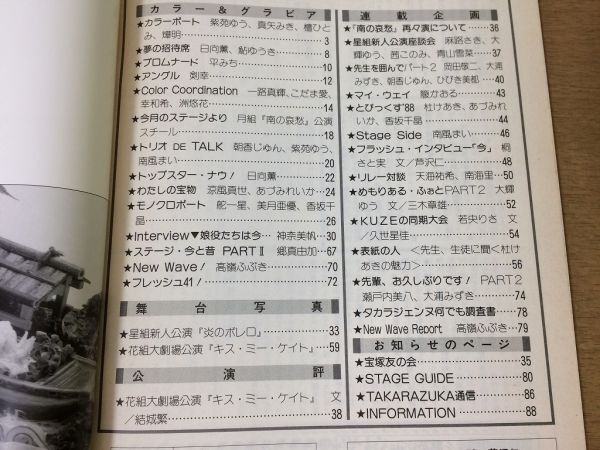 カラー&グラビア
★カラーポート 紫苑ゆう、真矢みき、檀ひと
み、燁明 3
★夢の招待席 日向薫、鮎ゆうき 8
★プロムナード 平みち 10
★アングル 剣幸 12
★Color Coordination 一路真輝、こだま愛、
幸和希、洲悠花 14
★今月のステージより 月組『南の哀愁』公演
スチール 18
★トリオ DE TALK 朝香じゅん、紫苑ゆう、
南風まい 20
★トップスター・ナウ! 日向薫 22
★わたしの宝物 涼風真世、あづみれいか 24
★モノクロポート 舵一星、美月亜優、香坂千
晶 26
★Interview♥娘役たちは今… 神奈美帆 30
★ステージ・今と昔 PARTⅡ 郷真由加 67
★New Wave! 高嶺ふぶき 70
★フレッシュ41! 72
舞台写真
★星組新人公演『炎のボレロ』 33
★花組大劇場公演『キス・ミー・ケイト』 59
公演評
★花組大劇場公演『キス・ミー・ケイト』 文
/結城繁 38
連載企画
★『南の哀愁』再々演について 36
★星組新人公演座談会 麻路さき、大
輝ゆう、茜このみ、青山雪菜 37
★先生を囲んでパート2 岡田敬二、大浦
みずき、朝香じゅん、ひびき美都 40
★マイ・ウェイ 朧かおる 43
★とぴっくす'88 杜けあき、あづみれ
いか、香坂千晶 44
★Stage Side 南風まい 46
★フラッシュ・インタビュー「今」 桐
さと実 文/芦沢仁 48
★リレー対談 天海祐希、南海里 50
★めもりある・ふぉとPART2 大輝
ゆう 文/三木章雄 52
★KUZEの同期大会 若央りさ 文
/久世星佳 54
★表紙の人 〈先生、生徒に聞く杜け
あきの魅力〉 56
★先輩、お久しぶりです! PART2
瀬戸内美八、大浦みずき 74
★タカラジェンヌ何でも調査書 78
★New Wave Report 高嶺ふぶき… 79
お知らせのページ
★宝塚友の会 35
★STAGE GUIDE 80
★TAKARAZUKA通信 86
★INFORMATION 88